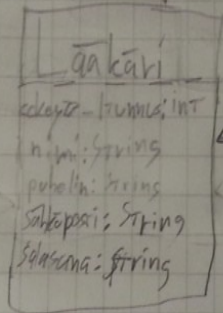 Lääkäri
tunnus: int
nimi: String
puhelin: String
Sähköposti: String
Salasana: String